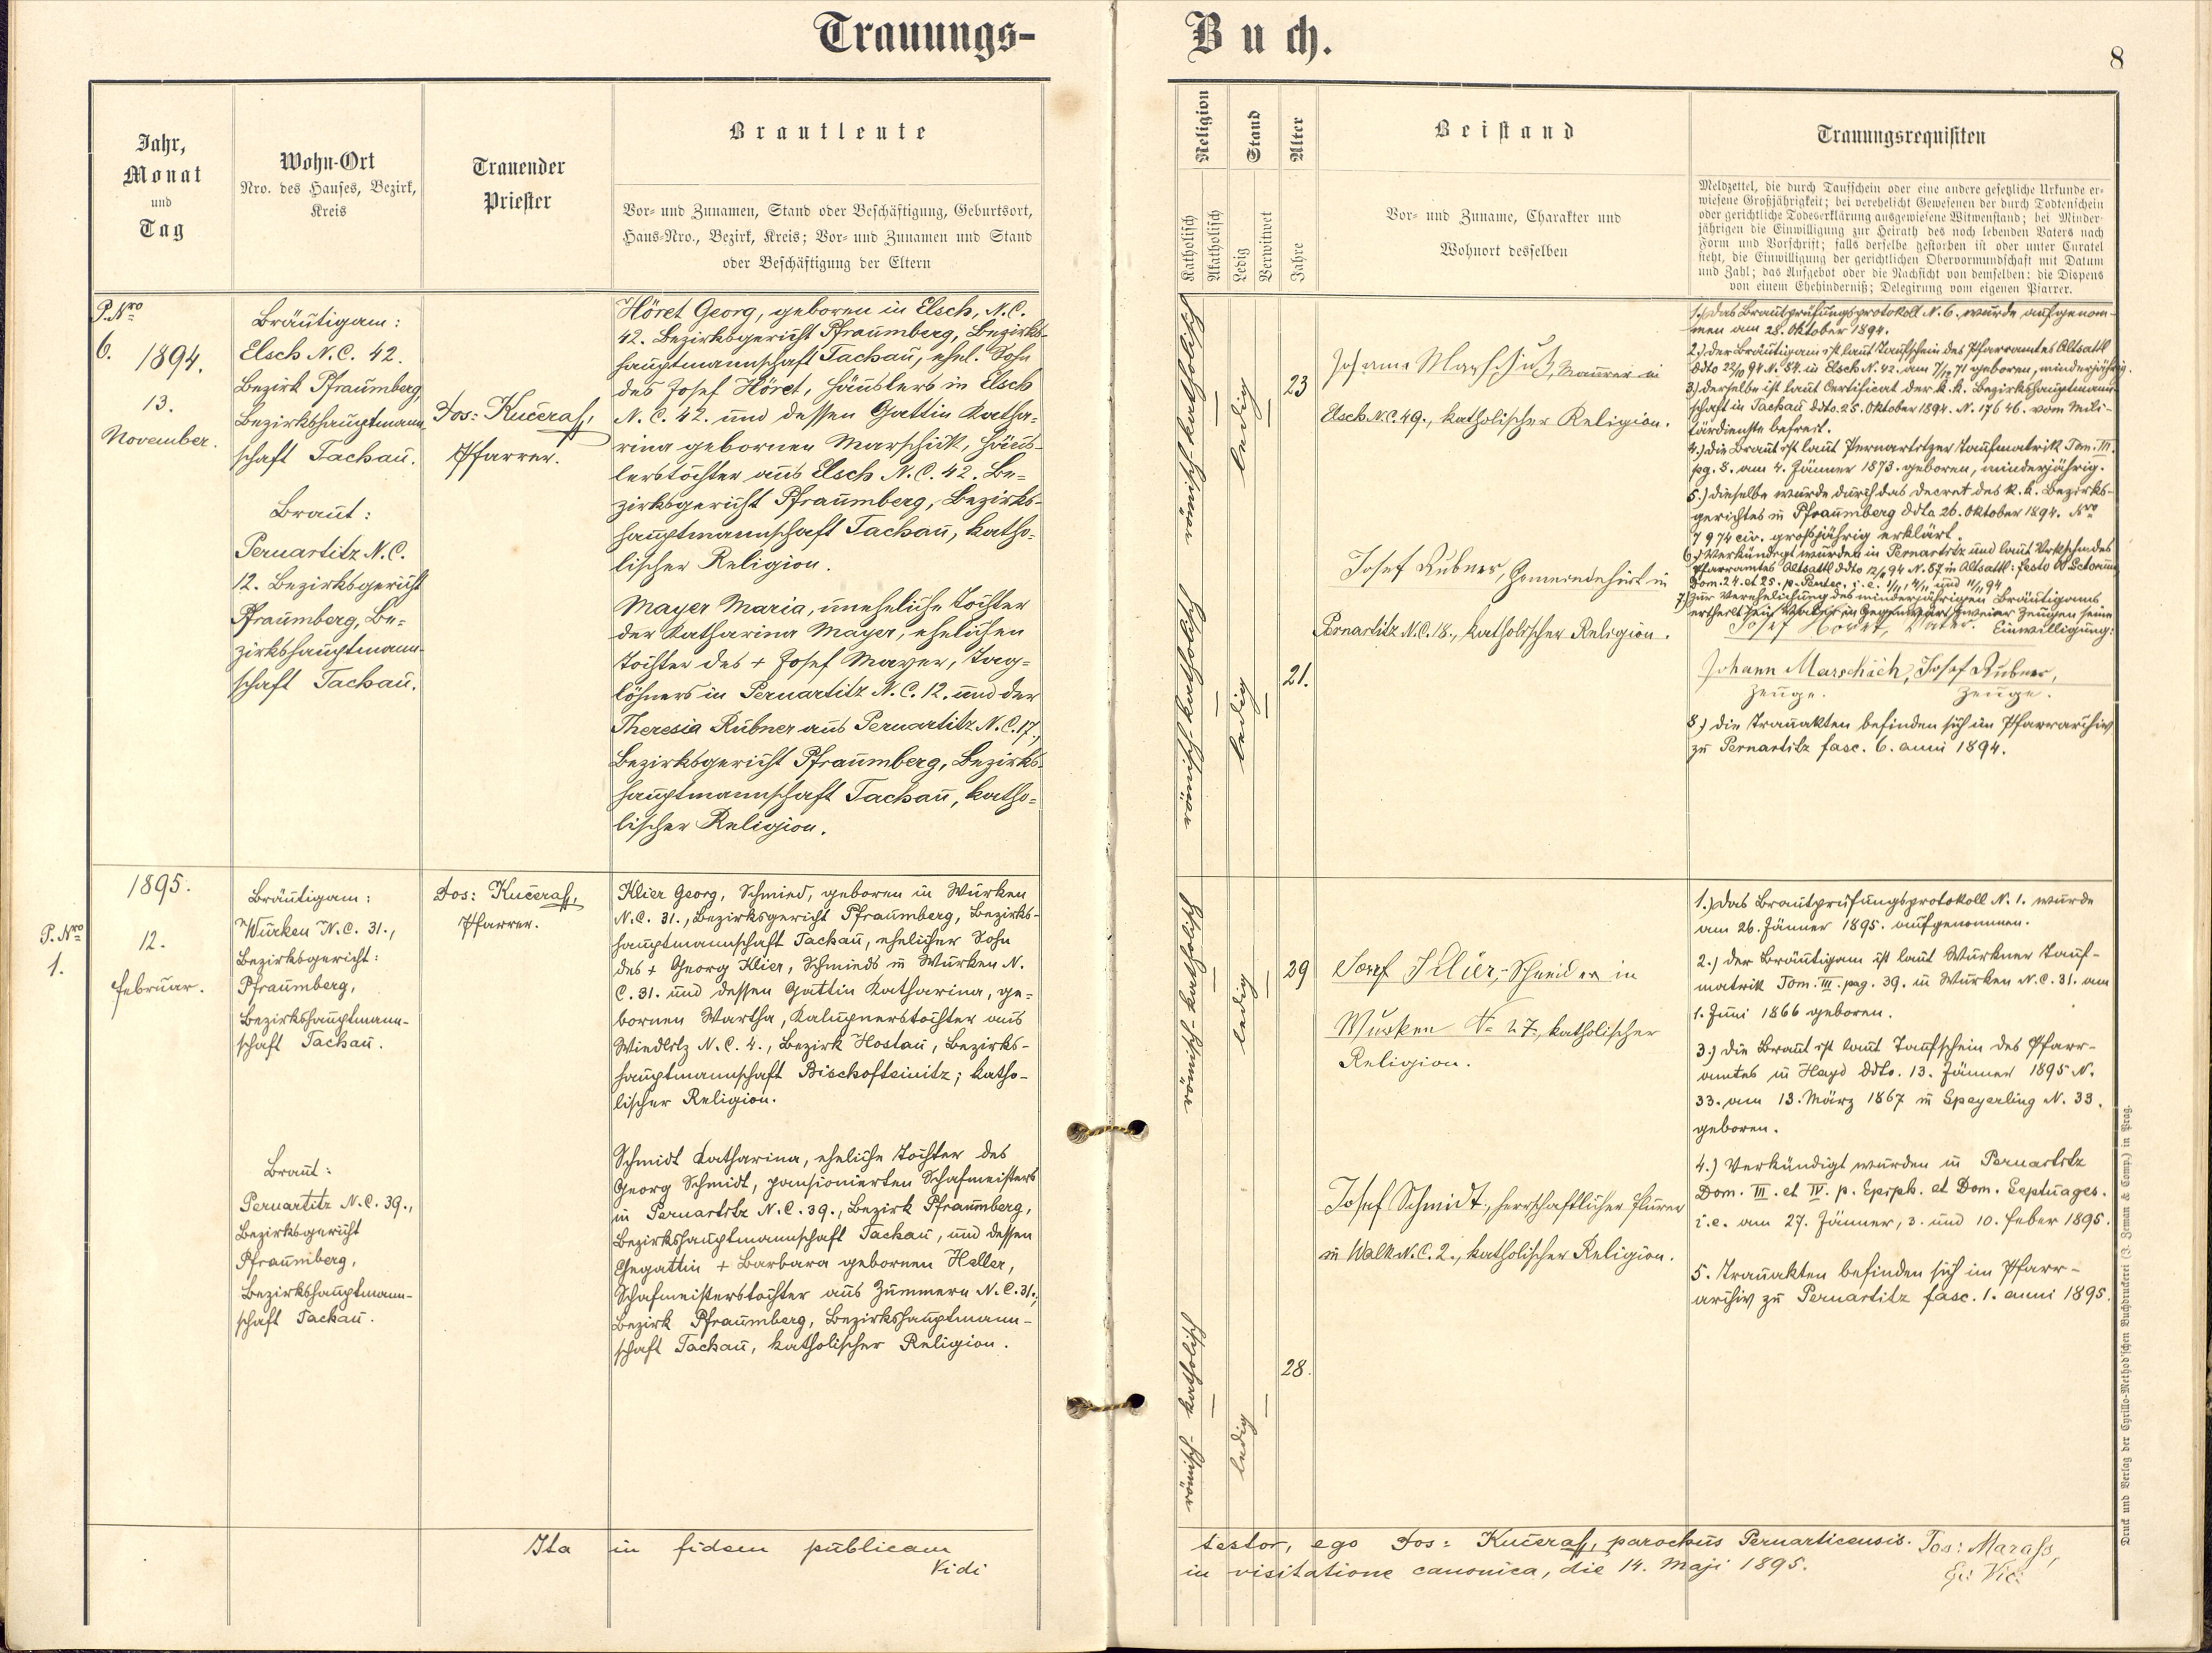 Trauungs-
Buch.
8
Jahr,
Monat
und
Tag
Wohn-Ort
Nro. des Hauses, Bezirk,
Kreis
Trauender
Priester
Brautleute
Vor- und Zunamen, Stand oder Beschäftigung, Geburtsort,
Haus-Nro., Bezirk, Kreis; Vor- und Zunamen und Stand
oder Beschäftigung der Eltern
Religion
Katholisch
Akatholisch
Stand
Ledig
Verwitwet
Alter
Jahre
Beistand
Vor- und Zuname, Charakter und
Wohnort desselben
Trauungsrequisiten
Meldzettel, die durch Taufschein oder eine andere gesetzliche Urkunde er-
wiesene Großjährigkeit; bei verehelicht Gewesenen der durch Todtenschein
oder gerichtliche Todeserklärung ausgewiesene Witwenstand; bei Minder-
jährigen die Einwilligung zur Heirath des noch lebenden Vaters nach
Form und Vorschrift; falls derselbe gestorben ist oder unter Curatel
steht, die Einwilligung der gerichtlichen Obervormundschaft mit Datum
und Zahl; das Aufgebot oder die Nachsicht von demselben; die Dispens
von einem Ehehinderniß; Delegirung vom eigenen Pfarrer.
P. Nro
6.
1894.
13.
November.
Bräutigam:
Elsch N.C. 42.
Bezirk Pfraumberg
Bezirkshauptmann-
schaft Tachau.
Braut:
Pernartitz N.C.
12. Bezirksgericht
Pfraumberg, Be-
zirkshauptmann-
schaft Tachau.
Jos: Kučera,
Pfarrer.
Höret Georg, geboren in Elsch, N.C.
42. Bezirksgericht Pfraumberg, Bezirks-
hauptmannschaft Tachau, ehel. Sohn
des Josef Höret, Häuslers in Elsch
N.C. 42. und dessen Gattin Katha-
rina gebornen Marschick, Häus-
lerstochter aus Elsch N.C. 42. Be-
zirksgericht Pfraumberg, Bezirks-
hauptmannschaft Tachau, katho-
lischer Religion.
Mayer Maria, uneheliche Tochter
der Katharina Mayer, ehelichen
Tochter des + Josef Mayer, Tag-
löhners in Pernartitz N.C. 12. und der
Theresia Rubner aus Pernartitz N.C. 17.,
Bezirksgericht Pfraumberg, Bezirks-
hauptmannschaft Tachau, katho-
lischer Religion.
römisch-katholisch
ledig
23
römisch-katholisch
ledig
21.
Johann Marschick, Maurer in
Elsch N.C. 49., katholischer Religion.
Josef Rubner, Gemeindehirt in
Pernartitz N.C. 18., katholischer Religion.
1.) Das Brautprüfungsprotokoll N. 6. wurde aufgenom-
men am 28. Oktober 1894.
2.) Der Bräutigam ist laut Taufschein des Pfarramtes Altsattl
ddto 22/10 94 N. 84. in Elsch N. 42. am 7/12 71 geboren, minderjährig.
3.) Derselbe ist laut Certificat der k.k. Bezirkshauptmann-
schaft in Tachau ddto. 25. Oktober 1894. N. 17646. vom Mili-
tärdienste befreit.
4.) Die Braut ist laut Pernartitzer Taufmatrik Tom. III.
pg. 8. am 4. Jänner 1873. geboren, minderjährig.
5.) Dieselbe wurde durch das Decret des k.k. Bezirks-
gerichtes in Pfraumberg ddto 26. Oktober 1894. Nro
7974 civ. großjährig erklärt.
6.) Verkündigt wurden in Pernartitz und laut Verkschein des
Pfarramtes Altsattl ddto 12/11 94 N. 87. in Altsattl: festo
Dom. 24. et 25. p. Pentec. i.e. 1/11, 4/11 und 11/11 94
7.) Zur Verehelichung des minderjährigen Bräutigams
ertheilt sein Vater in Gegenwart zweier Zeugen seine
Josef Höret, Vater. Einwilligung:
Johann Marschich, Josef Rubner,
Zeuge. Zeuge.
8.) Die Trauakten befinden sich im Pfarrarchiv
zu Pernartitz fasc. 6. anni 1894.
P. Nro
1.
1895.
12.
Februar.
Bräutigam:
Wurken N.C. 31.,
Bezirksgericht:
Pfraumberg,
Bezirkshauptmann-
schaft Tachau.
Braut:
Pernartitz N.C. 39.,
Bezirksgericht
Pfraumberg,
Bezirkshauptmann-
schaft Tachau.
Jos: Kučera,
Pfarrer.
Klier Georg, Schmied, geboren in Wurken
N.C. 31., Bezirksgericht Pfraumberg, Bezirks-
hauptmannschaft Tachau, ehelicher Sohn
des + Georg Klier, Schmieds in Wurken N.
C. 31. und dessen Gattin Katharina, ge-
bornen Wartha, Kalupnerstochter aus
Wiedlitz N.C. 4., Bezirk Hostau, Bezirks-
hauptmannschaft Bischofteinitz; katho-
lischer Religion.
Schmidt Katharina, eheliche Tochter des
Georg Schmidt, pensionierten Schafmeisters
in Pernartitz N.C. 39., Bezirk Pfraumberg,
Bezirkshauptmannschaft Tachau, und dessen
Ehegattin + Barbara gebornen Heller,
Schafmeisterstochter aus Zummern N.C. 31.,
Bezirk Pfraumberg, Bezirkshauptmann-
schaft Tachau, katholischer Religion.
römisch-katholisch
ledig
29
römisch-katholisch
ledig
28.
Josef Klier, Schneider in
Wurken N= 27, katholischer
Religion.
Josef Schmidt, herrschaftlicher Flurer
in Walk N.C. 2., katholischer Religion.
1.) Das Brautprüfungsprotokoll N. 1. wurde
am 26. Jänner 1895. aufgenommen.
2.) Der Bräutigam ist laut Wurkner Tauf-
matrik Tom. III. pag. 39. in Wurken N.C. 31. am
1. Juni 1866 geboren.
3.) Die Braut ist laut Taufschein des Pfarr-
amtes in Hayd ddto. 13. Jänner 1895 N.
33. am 13. März 1867 in Speyerling N. 33.
geboren.
4.) Verkündigt wurden in Pernartitz
Dom. III. et IV. p. Epiph. et Dom. Septuages.
i.e. am 27. Jänner, 3. und 10. Feber 1895.
5. Trauakten befinden sich im Pfarr-
archiv zu Pernartitz fasc. 1. anni 1895.
Ita in fidem publicam testor, ego Jos: Kučera, parochus Pernarticensis.
Vidi in visitatione canonica, die 14. Maji 1895.
Jos: Maras,
Druck und Verlag der Cyrillo-Method'schen Buchdruckerei (J. Zeman & Comp.) in Prag.